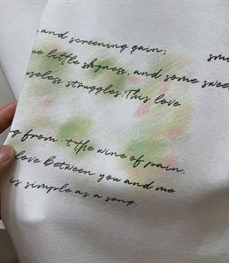 and screening gain; sm
me little shyness, and some swee
useless struggles. This love
g from the wine of pain.
love between you and me
is simple as a song,